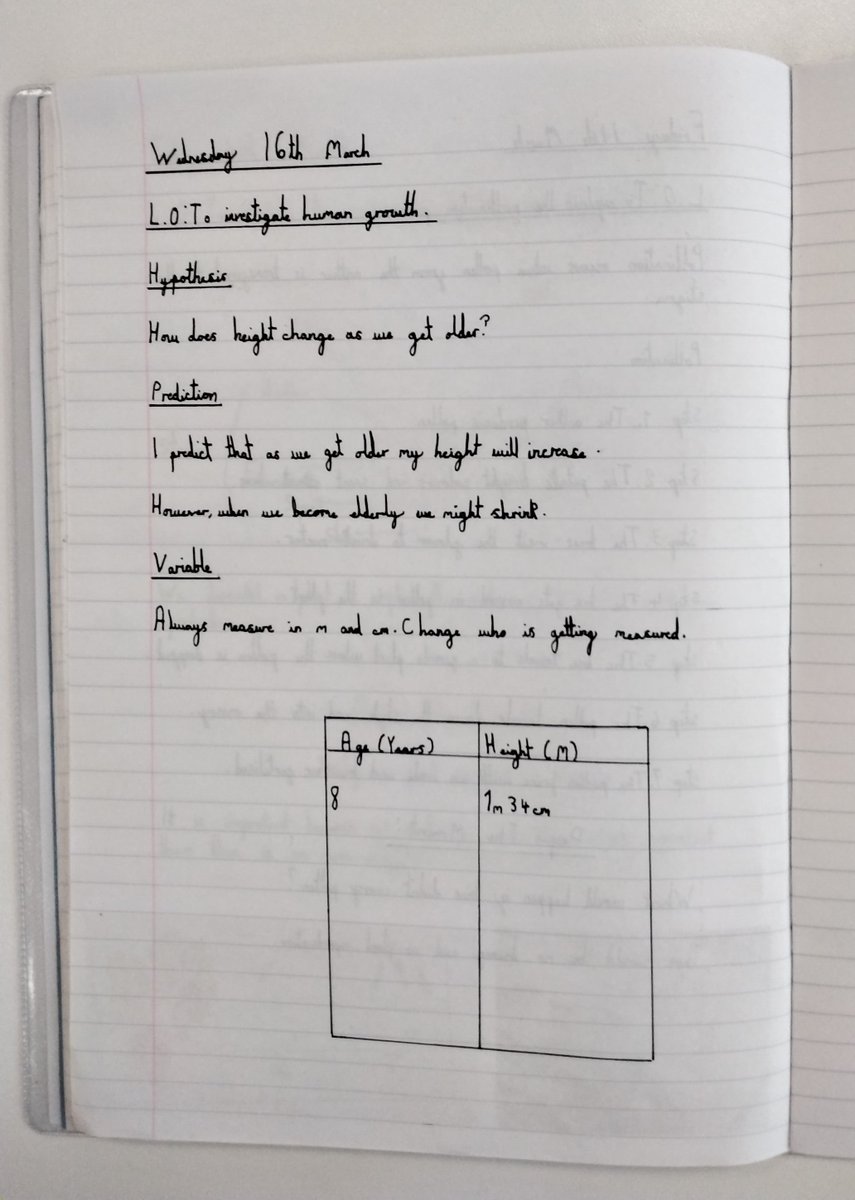 Wednesday 16th March
L.O: To investigate human growth.
Hypothesis
How does height change as we get older?
Prediction
I predict that as we get older my height will increase.
However, when we become elderly we might shrink.
Variable
Always measure in m and cm. Change who is getting measured.
Age (Years) Height (M)
8 1m 34cm